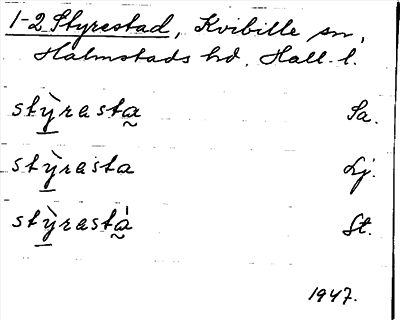 1-2 Styrestad, Kvibille sn,
Halmstads hd, Hall. l.
stỳ̲rasta̰ Sa.
stỳ̲rasta Lj.
stỳ̲rastá̰ St.
1947.